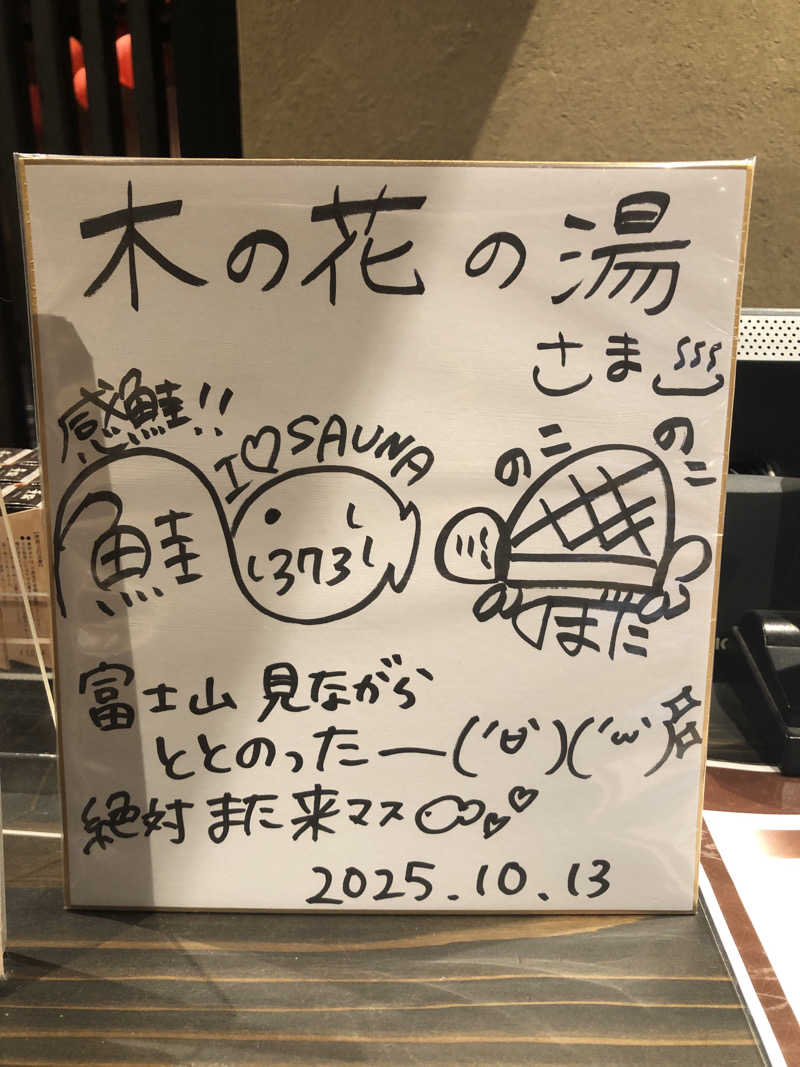 木の花の湯
さま♨
感鮭!!
I♡SAUNA
鮭
1373
のこ
のこ
まだ
富士山 見ながら
ととのったー(´∀`)(´ω`)
絶対また来マス
2025.10.13